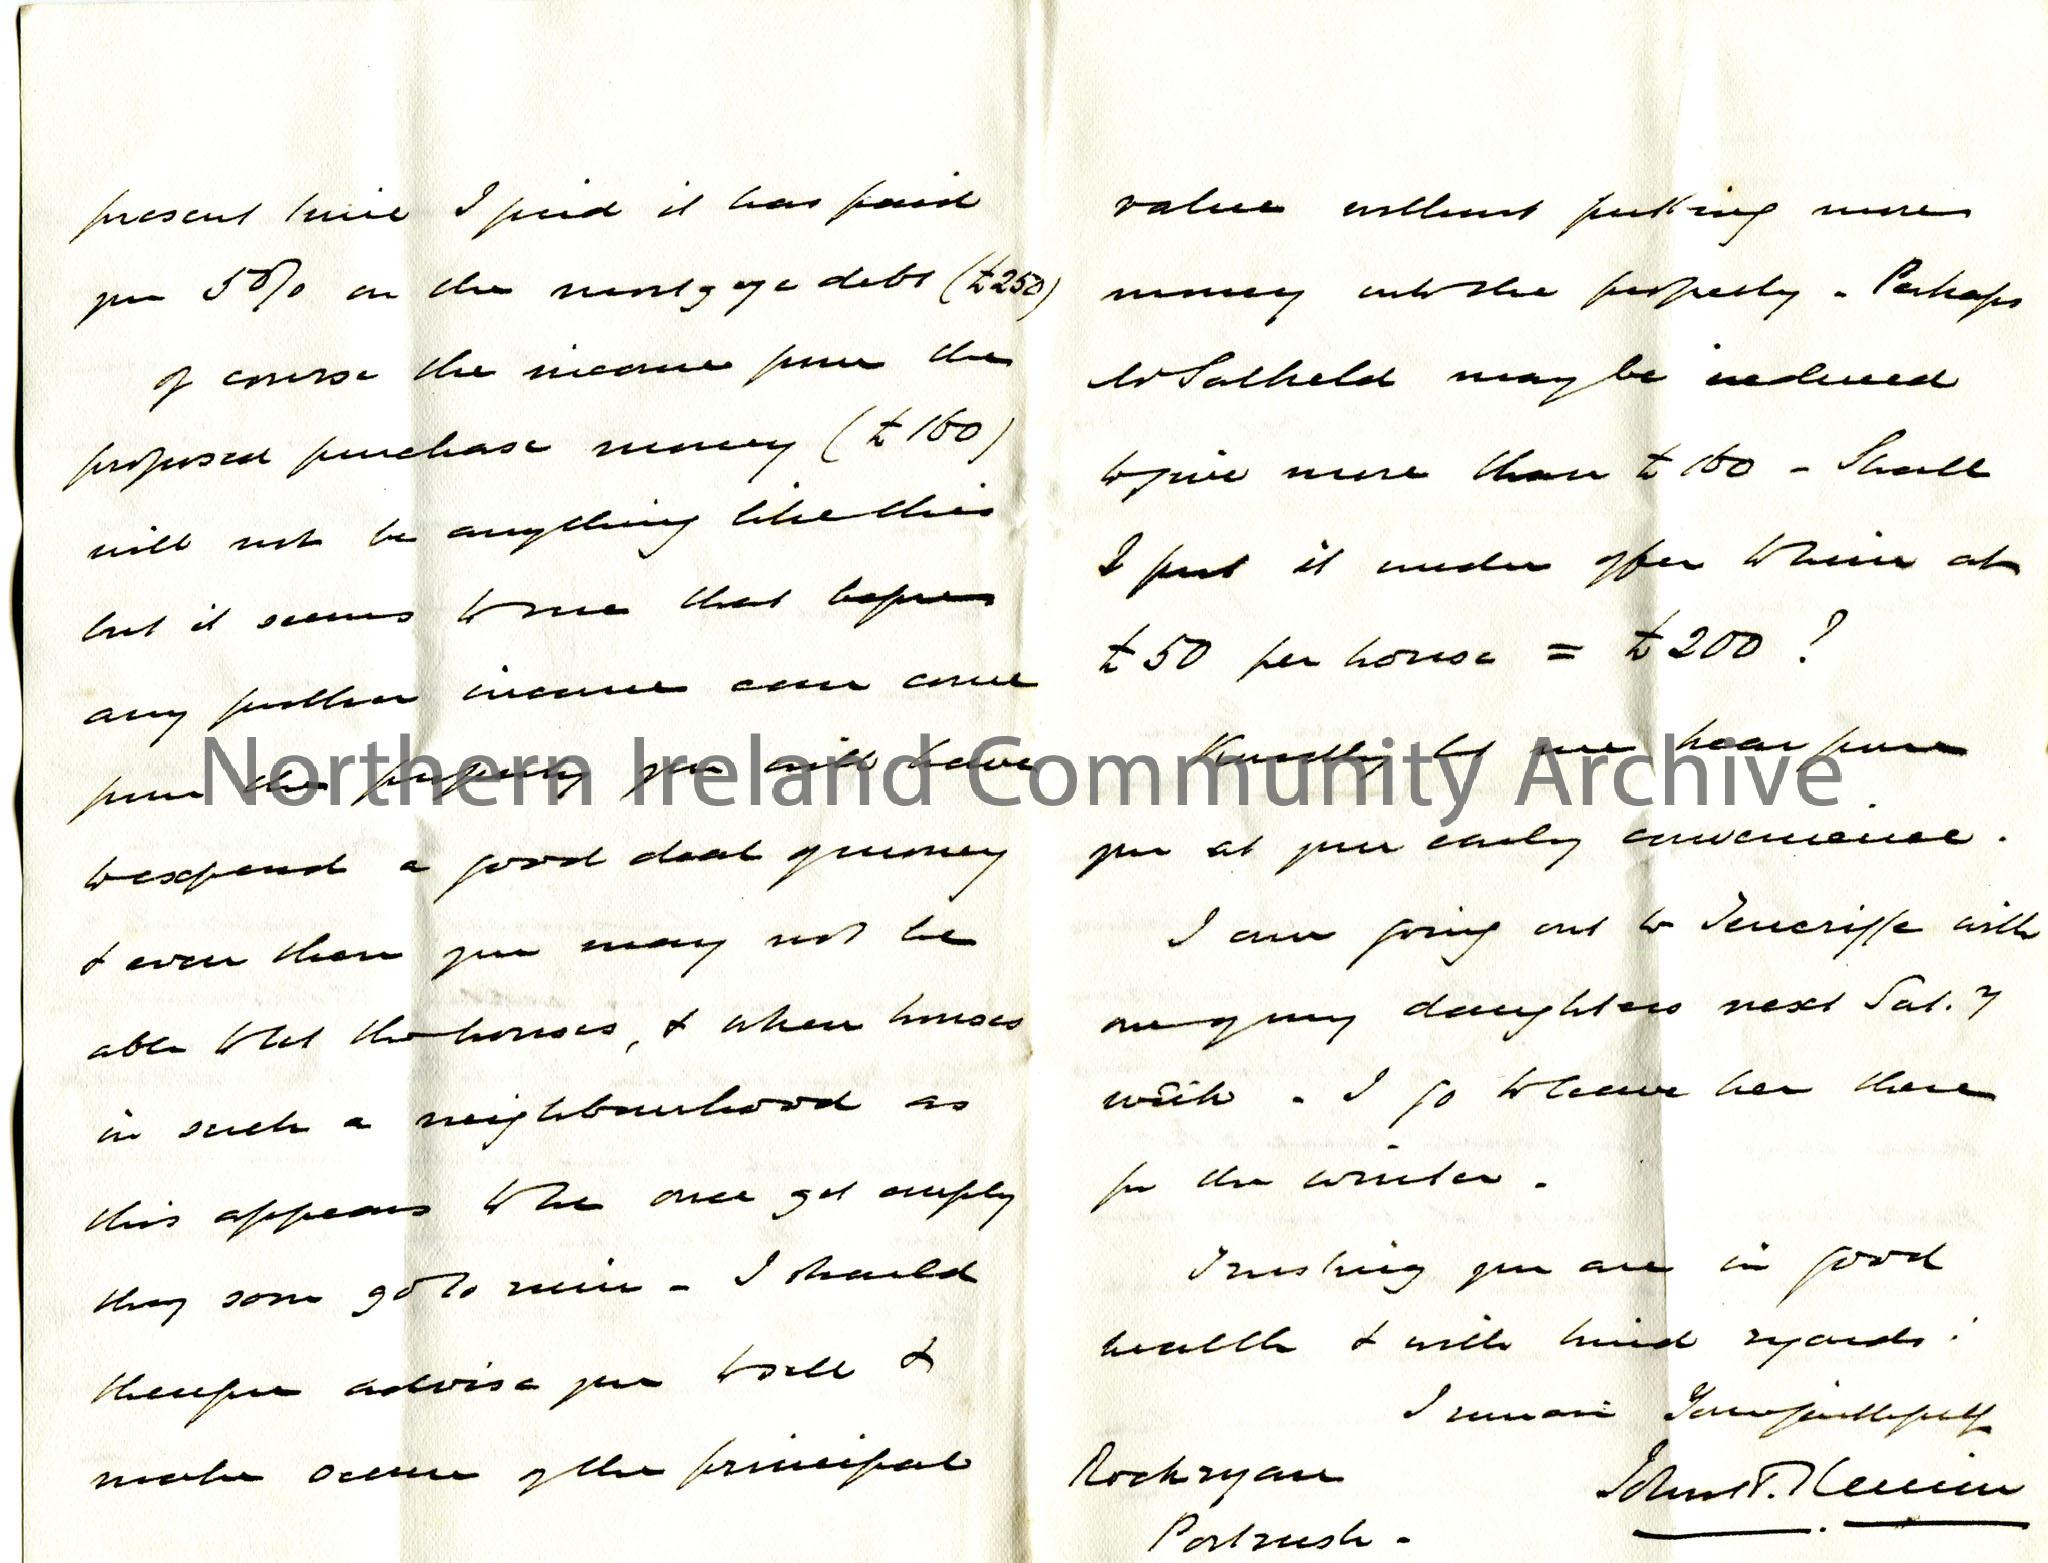 present time I find it has paid
you 5% on the mortgage debt (£250)
of course the income from the
proposed purchase money (£160)
will not be anything like this
but it seems to me that before
any further income can come
from the property you will have
to expend a good deal of money
& even then you may not be
able to let the houses, & when houses
in such a neighbourhood as
this appears to be once get empty
they soon go to ruin - I should
therefore advise you to sell &
make secure of the principal
value without putting more
money into the property - Perhaps
Mr Salkeld may be induced
to give more than £160 - Shall
I put it under offer to him at
£50 per house = £200?
Kindly let me hear from
you at your early convenience.
I am going out to Teneriffe with
one of my daughters next Sat.y
week - I go to leave her there
for the winter -
Trusting you are in good
health & with kind regards:
I remain Yours faithfully
John
Rockryan
Portrush -
Northern Ireland Community Archive